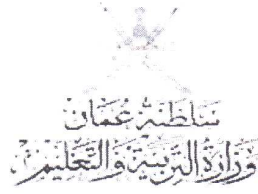 سَلطنة عُمان
وَزارة التربية وَالتعليم